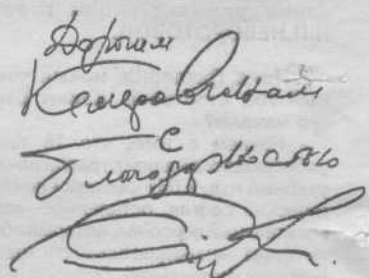 Дорогим
Кемеровчанам
с
благодарностью